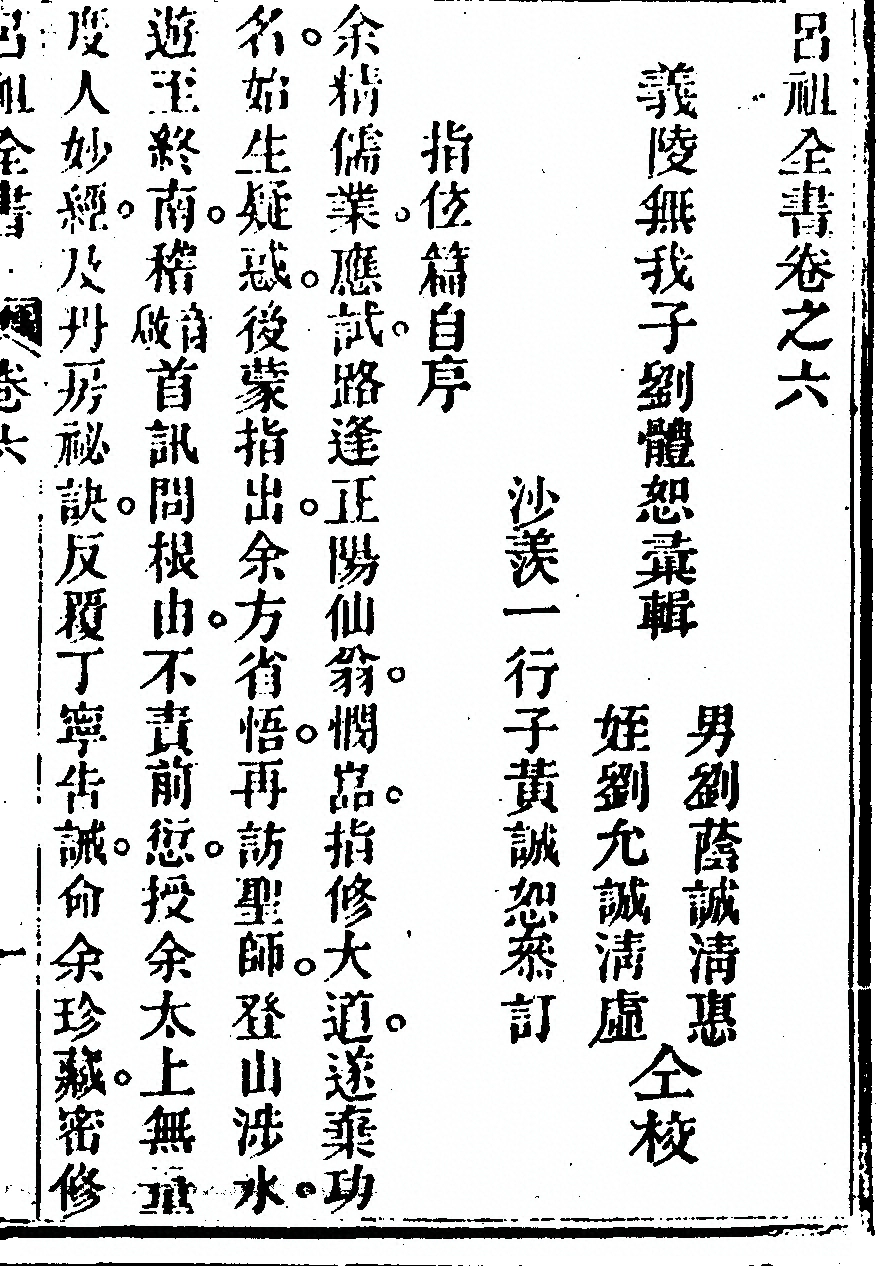 呂祖全書卷之六
義陵無我子劉體恕彙輯
男劉蔭誠清惠
姪劉允誠清虛
仝校
沙羨一行子黃誠恕叅訂
指佐篇自序
余精儒業。應試。路逢正陽仙翁。憫嵓。指修大道。遂棄功
名。始生疑惑。後蒙指出。余方省悟。再訪聖師。登山涉水。
遊至終南。稽首訊問根由。不責前愆。授余太上無量
度人妙經。及丹房祕訣。反覆丁寧告誡。命余珍藏。密修
呂祖全書 卷六 一